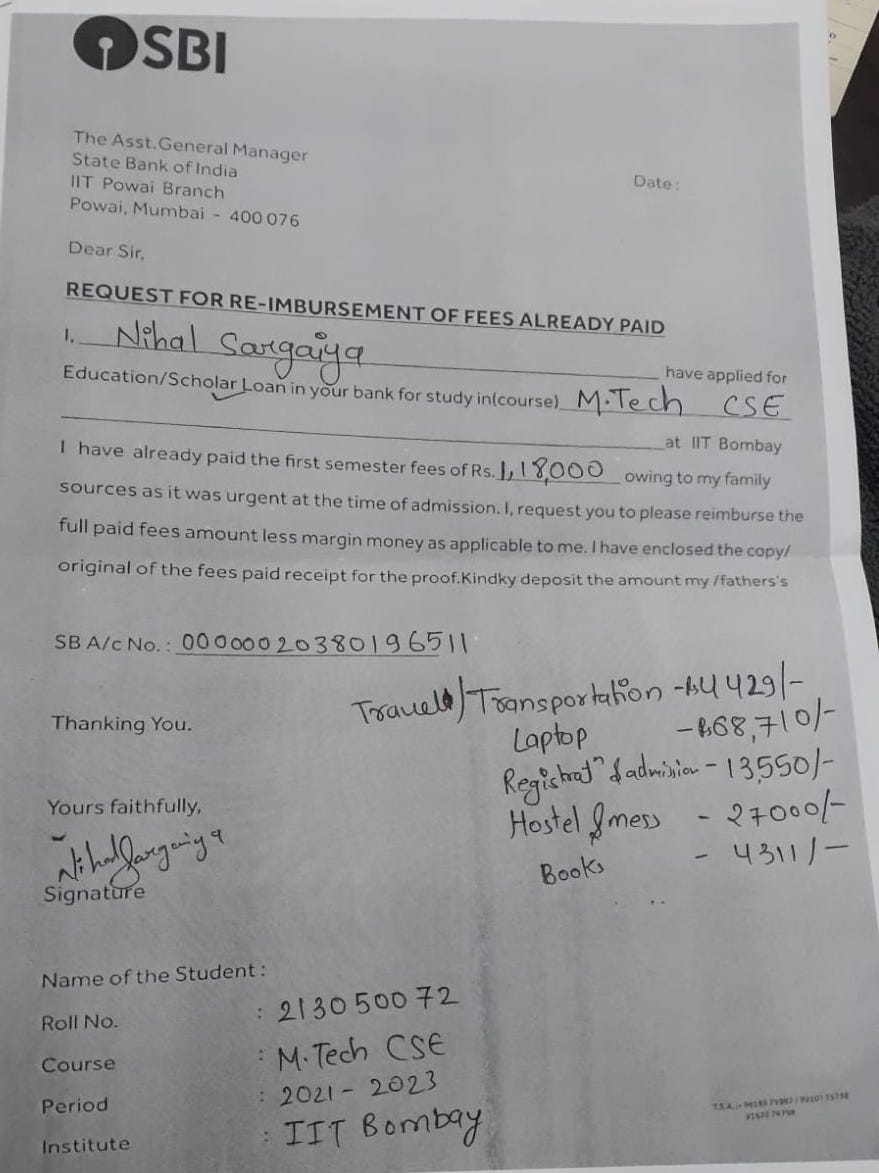 SBI
The Asst.General Manager
State Bank of India
IIT Powai Branch
Powai, Mumbai - 400 076
Date :
Dear Sir,
REQUEST FOR RE-IMBURSEMENT OF FEES ALREADY PAID
I. Nihal Sargaiya have applied for
Education/Scholar Loan in your bank for study in(course) M.Tech CSE
at IIT Bombay
I have already paid the first semester fees of Rs. 1,18,000 owing to my family
sources as it was urgent at the time of admission. I, request you to please reimburse the
full paid fees amount less margin money as applicable to me. I have enclosed the copy/
original of the fees paid receipt for the proof.Kindky deposit the amount my /fathers's
SB A/c No. : 00000020380196511
Travel/Transportation -₨4429/-
Thanking You.
Laptop -₨68,710/-
Registratⁿ & admission - 13,550/-
Yours faithfully,
Hostel & mess - 27000/-
Books - 4311/-
Nihal Sargaiya
Signature
Name of the Student :
Roll No. : 213050072
Course : M.Tech CSE
Period : 2021 - 2023
Institute : IIT Bombay